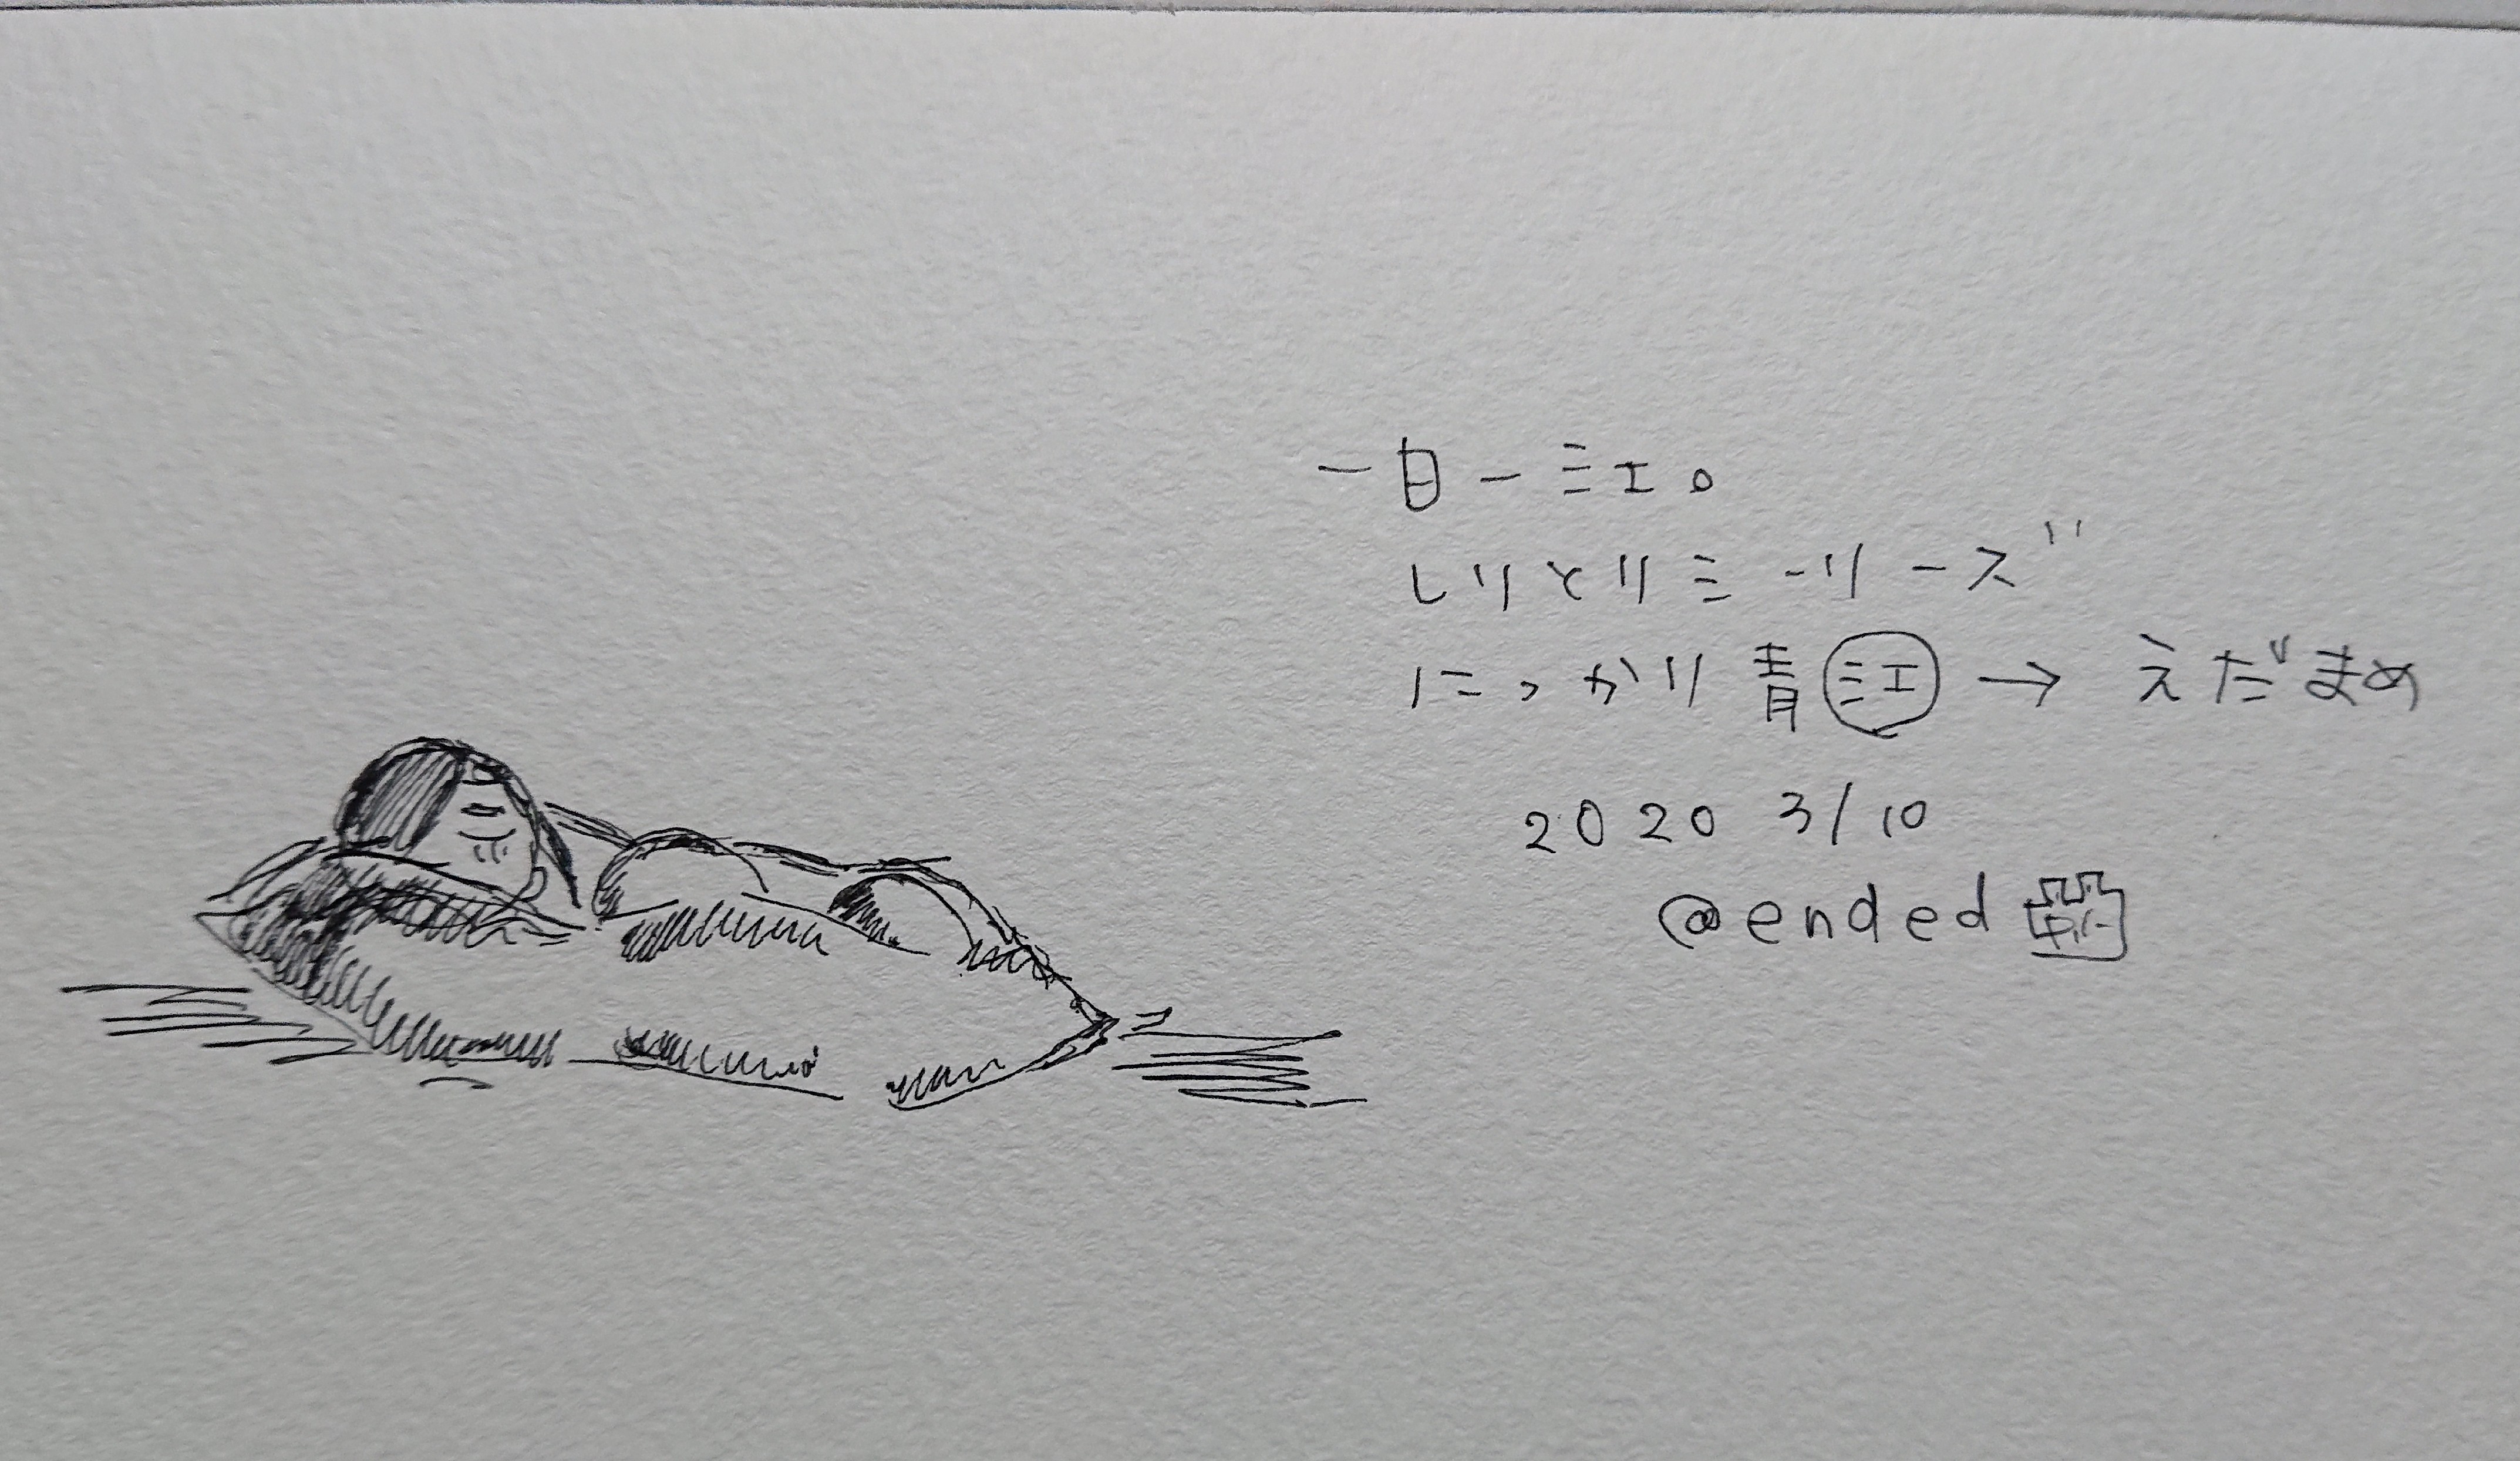 一日一江。
しりとりシリーズ
にっかり青江→えだまめ
2020 3/10
@ended